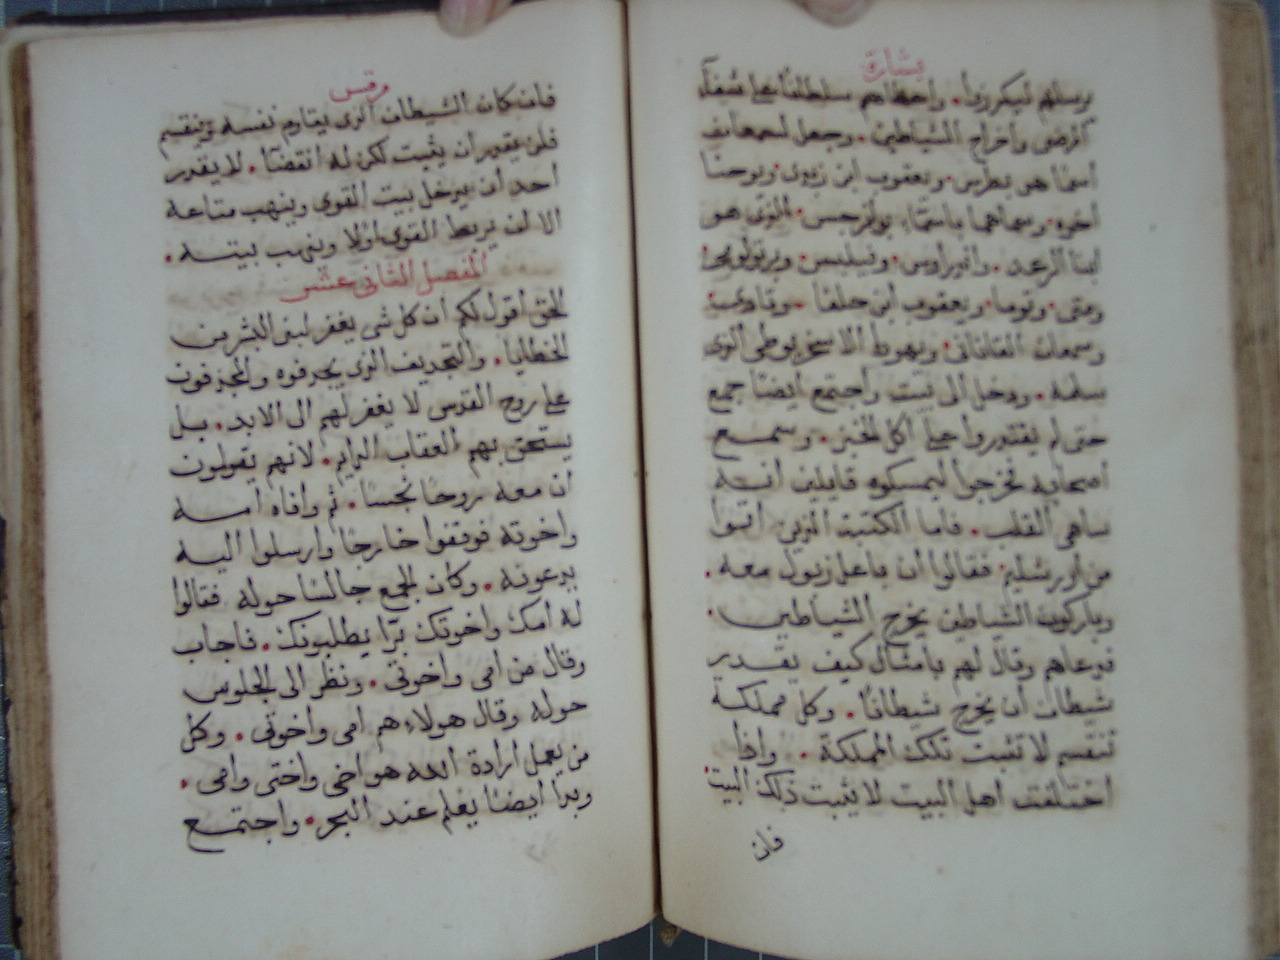 بشارة
يرسلهم ليكرزوا. واعطاهم سلطانا على شفاء
المرضى واخراج الشياطين. وجعل لسمعان
اسما هو بطرس. ويعقوب ابن زبدى ويوحنا
اخوه. وسماهما باسماء بوانرجس. الذى هو
ابنا الرعد. واندراوس. وفيلبس. وبرتولوميوس
ومتى. وتوما. ويعقوب ابن حلفا. وتداوس
وسمعان القانانى. ويهوذا الاسخريوطى الذى
سلمه. ودخل الى بيت واجتمع ايضا جمع
حتى لم يقتدروا جميعا اكل الخبز. وسمع
اصحابه فخرجوا ليمسكوه قايلين انه
ساهى القلب. فاما الكتبة الذين اتوا
من اورشليم. فقالوا ان باعلزبول معه.
وباركون الشياطين يخرج الشياطين.
فدعاهم وقال لهم بامثال كيف يقدر
شيطان ان يخرج شيطانا. وكل مملكة
تنقسم لا تثبت تلك المملكة. واذا
اختلفت اهل البيت لا يثبت ذلك البيت.
فان
مرقس
فان كان الشيطان الذى يقاوم نفسه وينقسم
فلن يقدر ان يثبت لكن له انقضا. لا يقدر
احد ان يدخل بيت القوى وينهب متاعه
الا ان يربط القوى اولا وينهب بيته.
الفصل الثانى عشر
الحق اقول لكم ان كل شى يغفر لبنى البشر من
الخطايا. والتجديف الذى يجدفوه والمجدفون
على روح القدس لا يغفر لهم الى الابد. بل
يستحق بهم العقاب الدايم. لانهم يقولون
ان معه روحا نجسا. ثم وافاه امه
واخوته فوقفوا خارجا وارسلوا اليه
يدعونه. وكان الجمع جالسا حوله فقالوا
له امك واخوتك برا يطلبونك. فاجاب
وقال من امى واخوتى. ونظر الى الجلوس
حوله وقال هولاء هم امى واخوتى. وكل
من يعمل ارادة الله هو اخى واختى وامى.
وبدا ايضا يعلم عند البحر. واجتمع